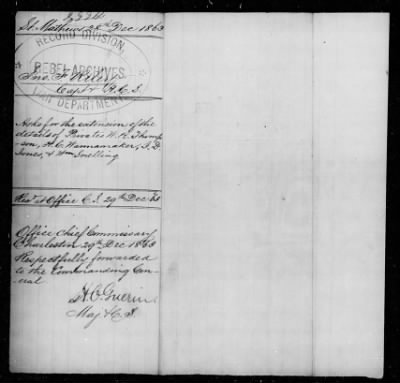 St. Mathews 28th Dec 1863
RECORD DIVISION
REBEL ARCHIVES
WAR DEPARTMENT
Jno. F.
Capt & A.C.S.
Asks for the extension of the
details of Privates W. R. Thomp
son, H. C. Wannamaker, J. D.
Jones, & Wm Snelling
Recd at Office C.S. 29th Dec 63
Office Chief Commissary
Charleston 29th Dec 1863
Respectfully forwarded
to the Commanding Gen-
eral
H. C. Guerin
Maj & C.S.